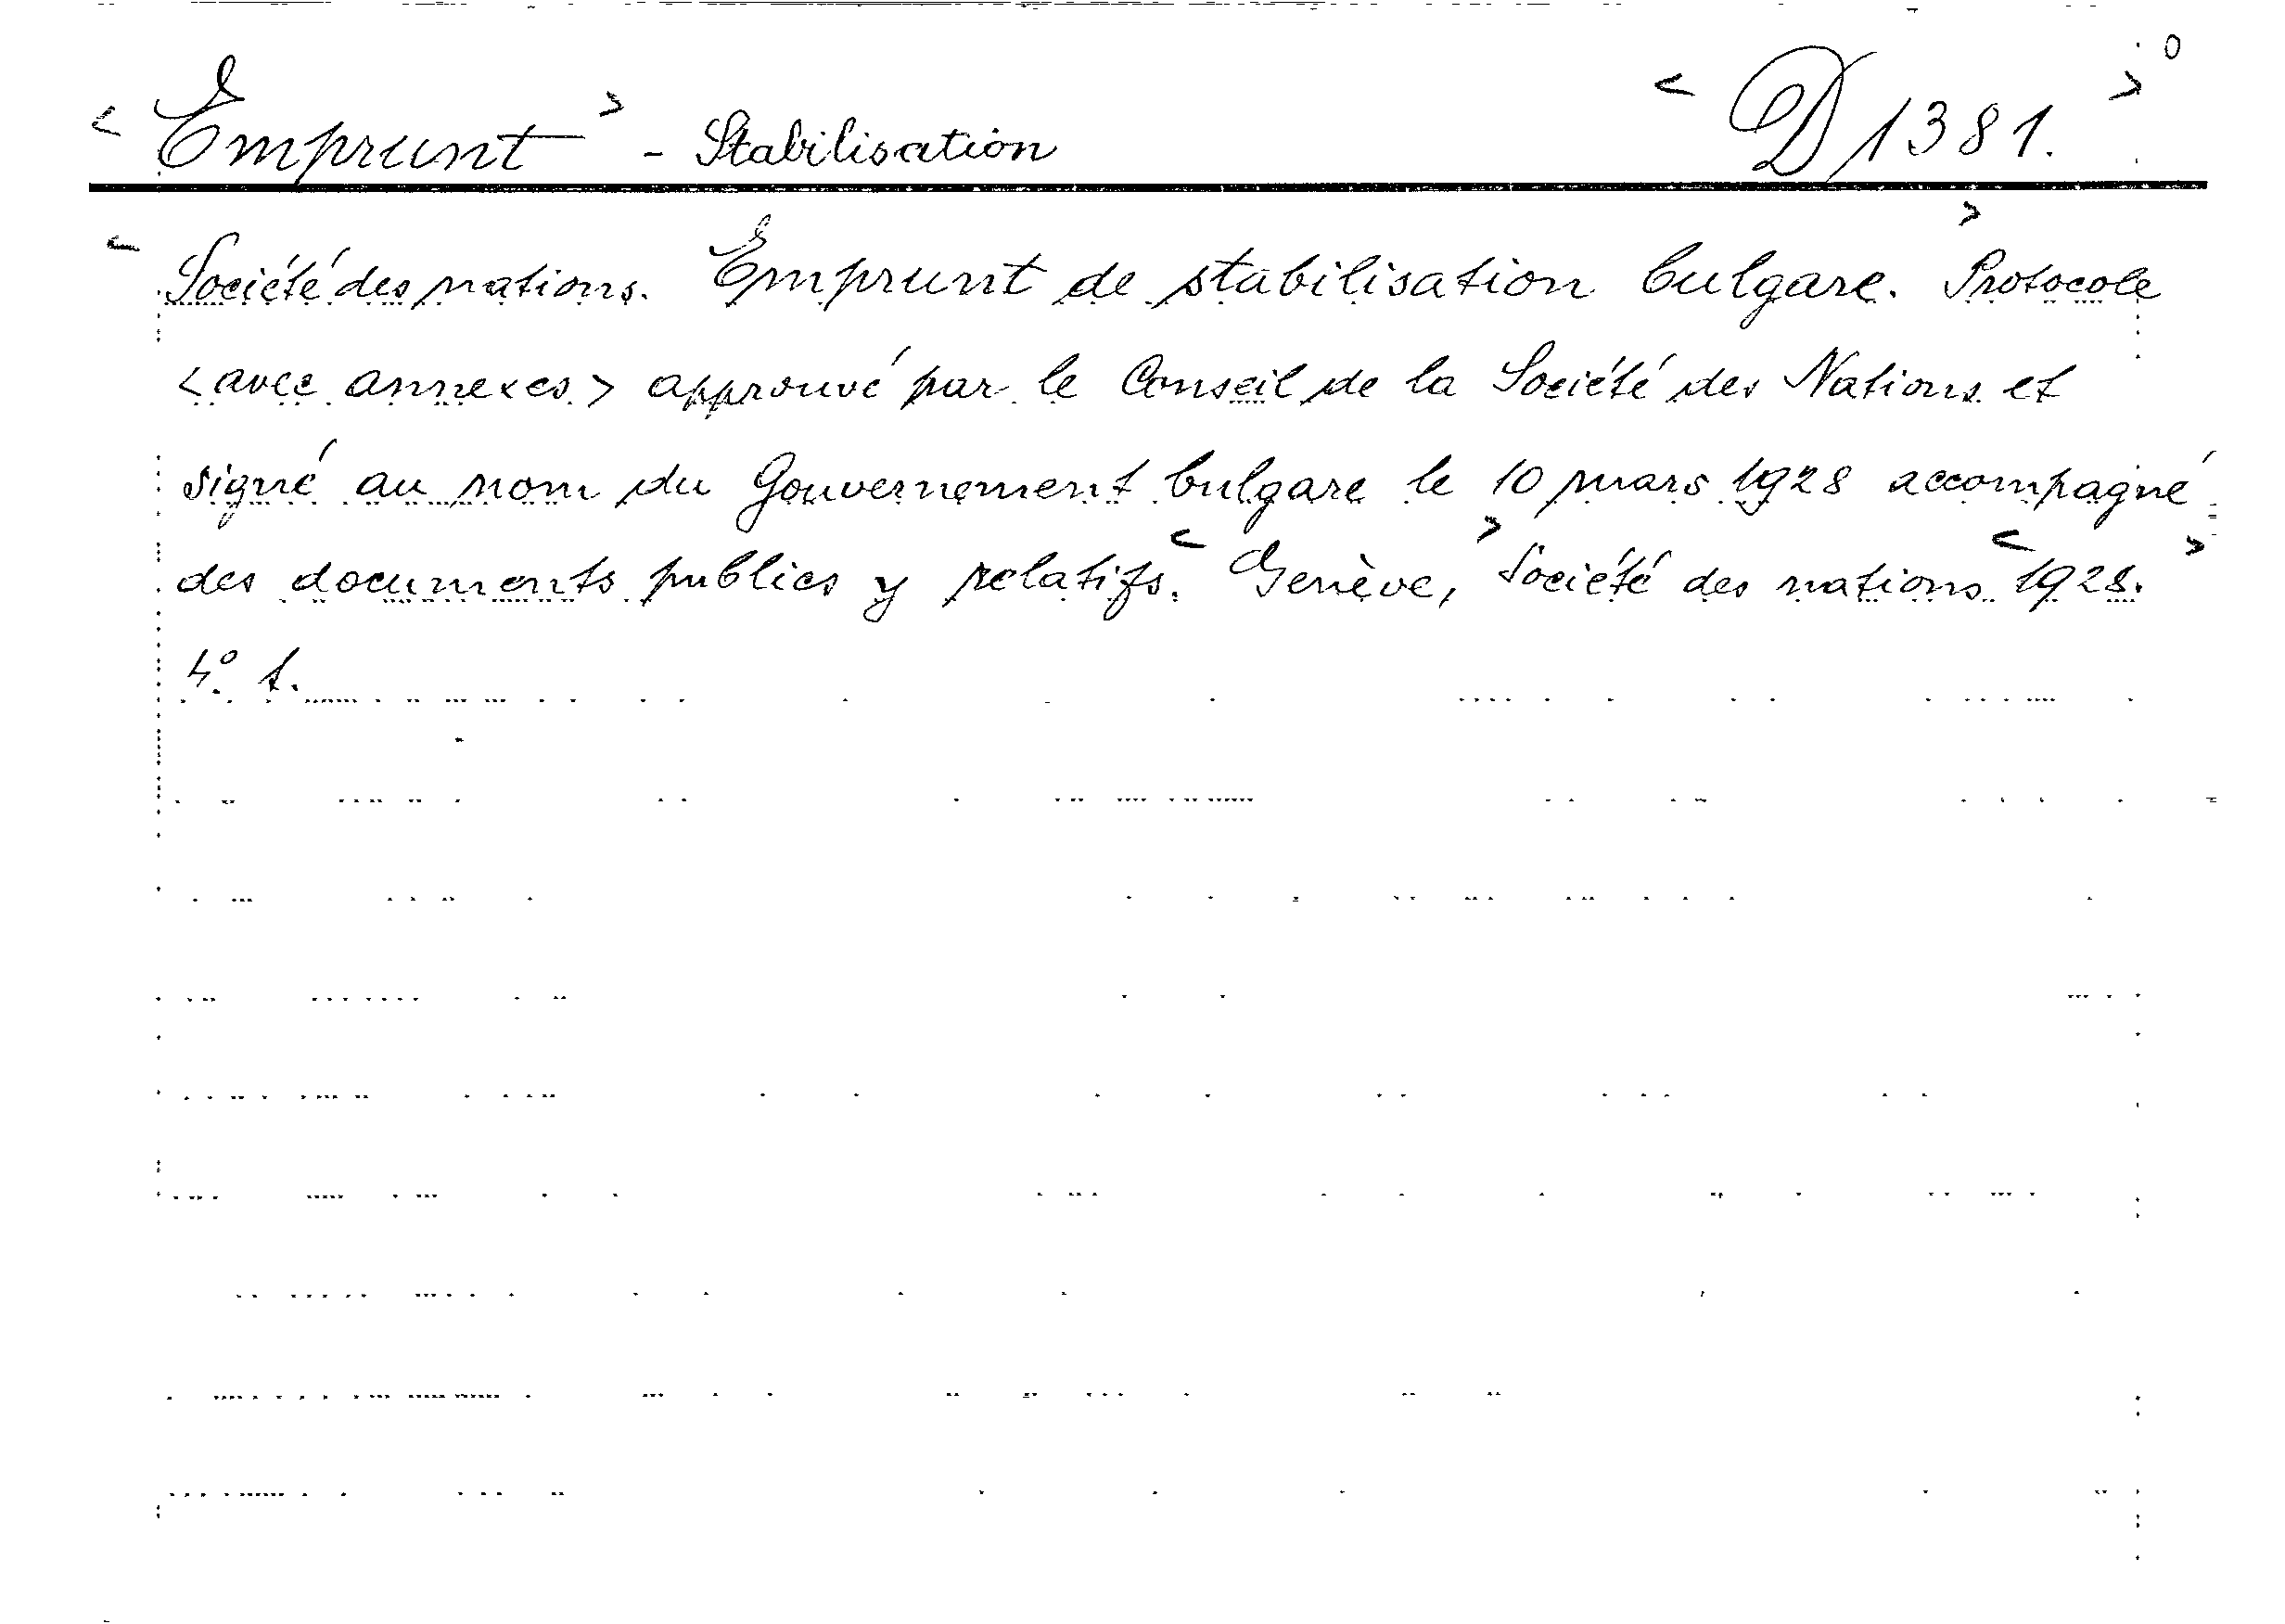 < Emprunt > - Stabilisation < D 1381. >
< Société des nations. Emprunt de stabilisation bulgare. > Protocole
< avec annexes > approuvé par le Conseil de la Société des Nations et
signé au nom du Gouvernement bulgare le 10 mars 1928 accompagné
des documents publics y relatifs. < Genève, > Société des nations < 1928. >
4° 1.